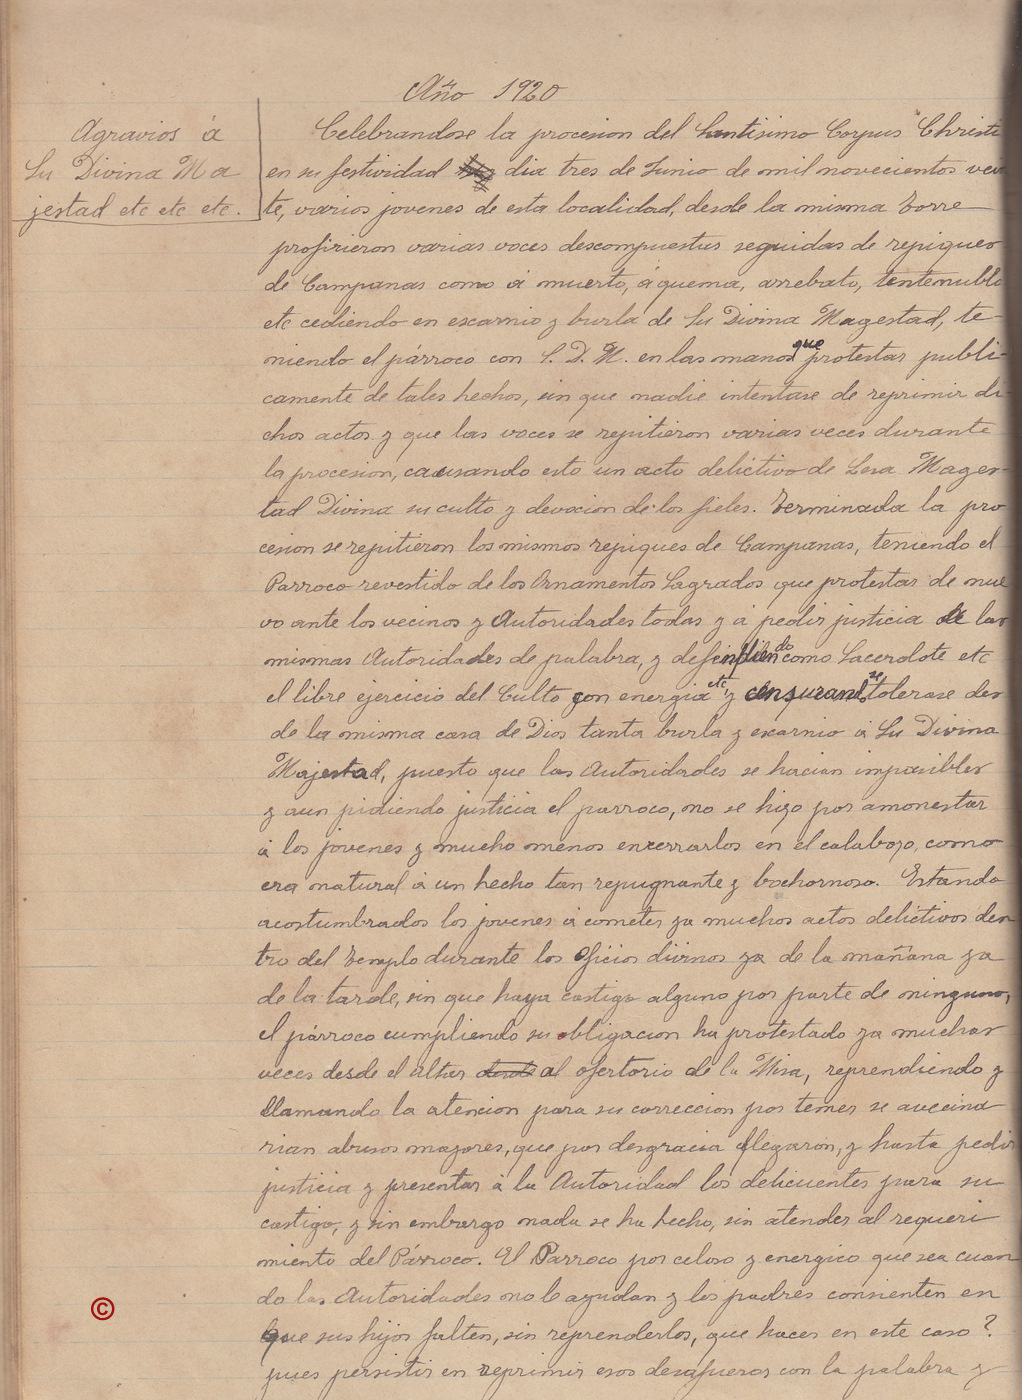 Año 1920
Agravios á
Su Divina Ma
jestad etc etc etc.
Celebrandose la procesion del Santisimo Corpus Christi
en su festividad dia tres de Junio de mil novecientos vein
te, varios jovenes de esta localidad, desde la misma Torre
profirieron varias voces descompuestas seguidas de repiques
de Campanas como á muerto, á quema, arrebato, tentenublo
etc cediendo en escarnio y burla de Su Divina Magestad, te-
niendo el párroco con S. D. M. en las manos que protestar publi-
camente de tales hechos, sin que nadie intentase de reprimir di-
chos actos y que las voces se repitieron varias veces durante
la procesion, causando esto un acto delictivo de Lesa Mages-
tad Divina su culto y devocion de los fieles. Terminada la pro
cesion se repitieron los mismos repiques de Campanas, teniendo el
Parroco revestido de los Ornamentos Sagrados que protestar de nue
vo ante los vecinos y Autoridades todas y á pedir justicia de las
mismas Autoridades de palabra, y defendiendo como Sacerdote etc
el libre ejercicio del Culto con energia etc, y censurando se tolerase des
de la misma casa de Dios tanta burla y escarnio á Su Divina
Majestad, puesto que las Autoridades se hacian impasibles
y aun pidiendo justicia el parroco, no se hizo por amonestar
á los jovenes y mucho menos encerrarlos en el calabozo, como
era natural á un hecho tan repugnante y bochornoso. Estando
acostumbrados los jovenes á cometer ya muchos actos delictivos den
tro del Templo durante los Oficios divinos ya de la mañana ya
de la tarde, sin que haya castigo alguno por parte de ninguno,
el párroco cumpliendo su obligacion ha protestado ya muchas
veces desde el altar desde al ofertorio de la Misa, reprendiendo y
llamando la atencion para su correccion por temer se avecina
rian abusos mayores, que por desgracia llegaron, y hasta pedir
justicia y presentar á la Autoridad los delicuentes para su
castigo, y sin embargo nada se ha hecho, sin atender al requeri
miento del Párroco. El Parroco por celoso y energico que sea cuan
do las Autoridades no le ayudan y los padres consienten en
que sus hijos falten, sin reprenderlos, que hacer en este caso?
pues persistir en reprimir esos desafueros con la palabra y
©